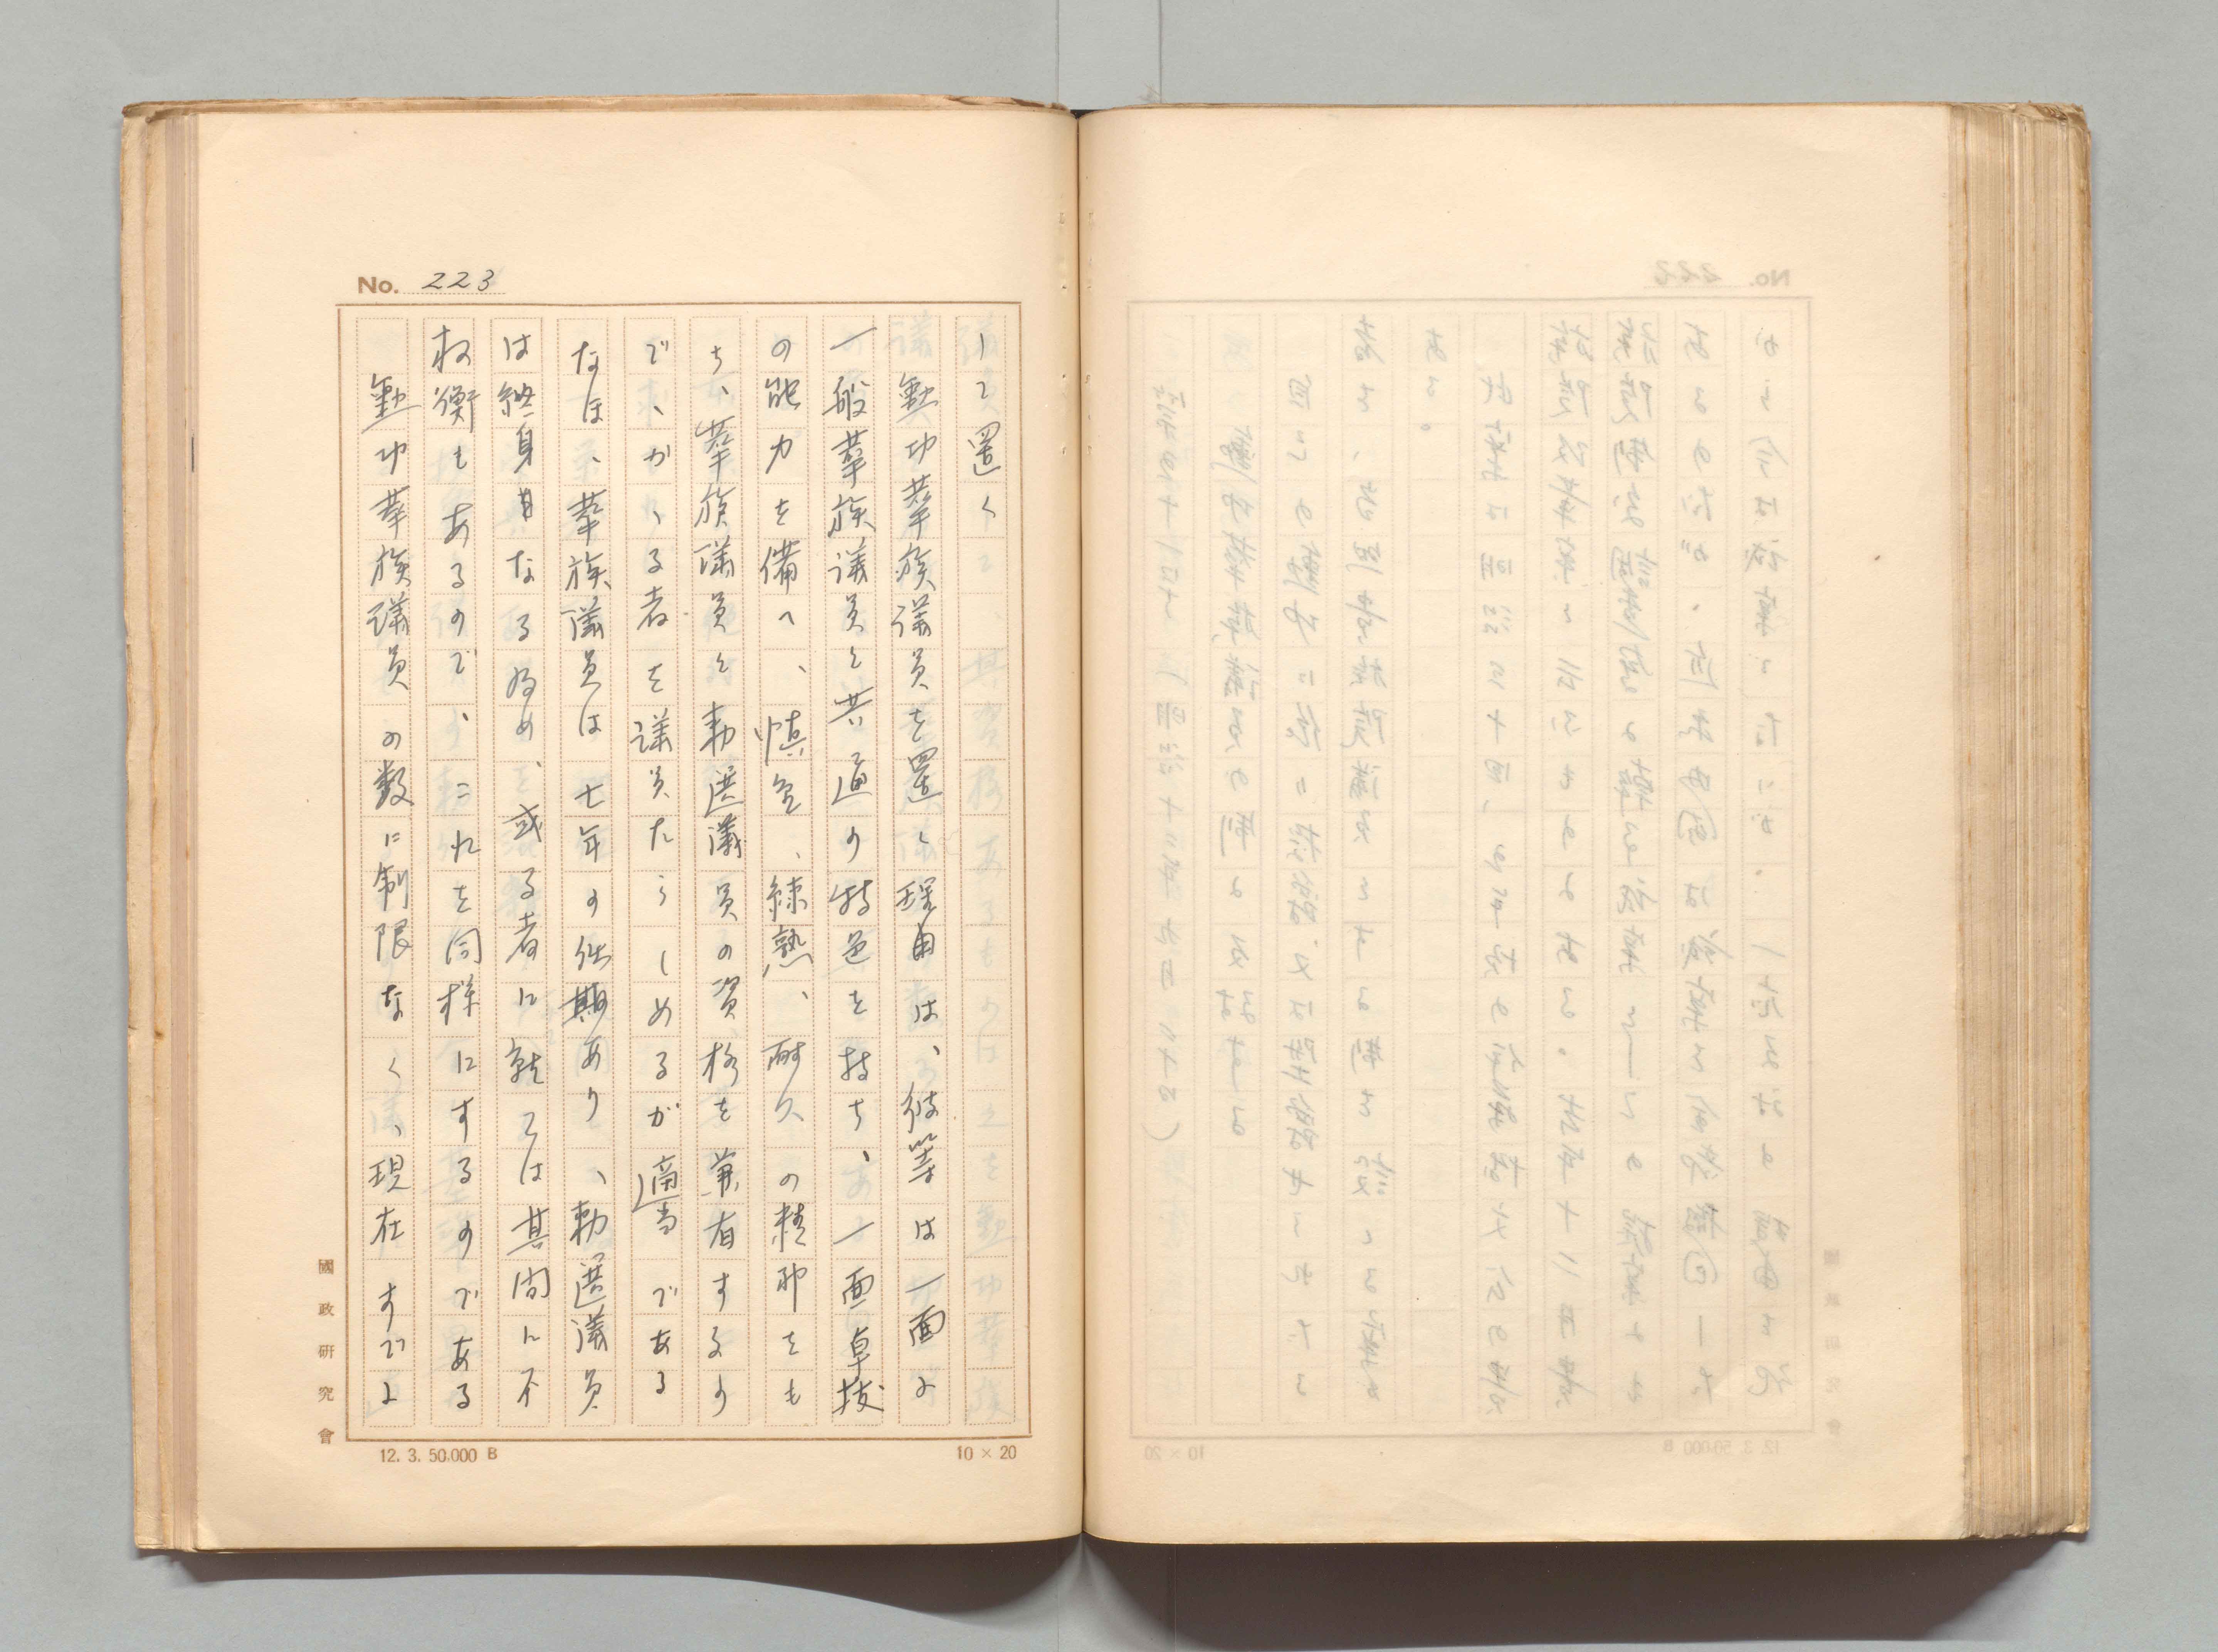 No. 223
して置く
勳功華族議員を置く理由は、彼等は一面に
一般華族議員と共通の特色を持ち、一面卓抜
の能力を備へ、慎重、練熟、耐久の精神をも
ち、華族議員と勅選議員の資格を兼有するの
で、かゝる者を議員たらしめるが適当である
なほ、華族議員は七年の任期あり、勅選議員
は終身なるため、或る者に就ては其間に不
权衡もあるので、これを同様にするのである
勳功華族議員の数に制限なく、現在すでに
國政研究會
12. 3. 50,000 B
10 × 20